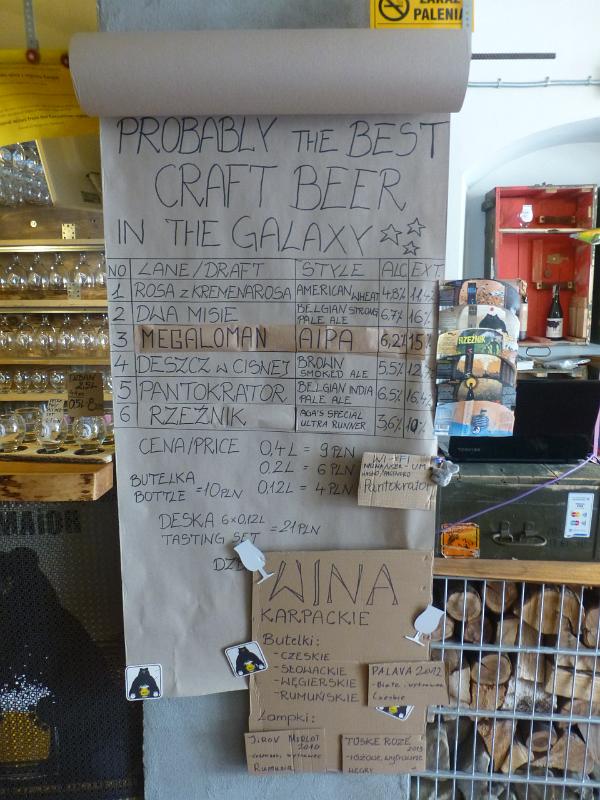 ZAKAZ
PALENIA
PROBABLY THE BEST
CRAFT BEER
IN THE GALAXY
NO LANE/DRAFT STYLE ALC EXT
1 ROSA z KREMENAROSA AMERICAN WHEAT 4,8%
2 DWA MISIE BELGIAN STRONG PALE ALE 6,7% 16%
3 MEGALOMAN AIPA 6,2% 15%
4 DESZCZ w CISNEJ BROWN SMOKED ALE 5,5%
5 PANTOKRATOR BELGIAN INDIA PALE ALE 6,5%
6 RZEŹNIK AGA'S SPECIAL ULTRA RUNNER 3,6%
CENA/PRICE 0,4L = 9PLN
0,2L = 6PLN
0,12L = 4PLN
BUTELKA
BOTTLE = 10PLN
DESKA 6x0,12L
TASTING SET = 21PLN
WI-FI
Pantokrator
WINA
KARPACKIE
Butelki:
- CZESKIE
- SŁOWACKIE
- WĘGIERSKIE
- RUMUŃSKIE
PALAVA 2012
- Białe, wytrawne
Czeskie
Lampki:
MERLOT
2010
Rumunia
TUSKE ROZE 2013
- różowe, wytrawne
WĘGRY
RZEŹNIK
TOSHIBA